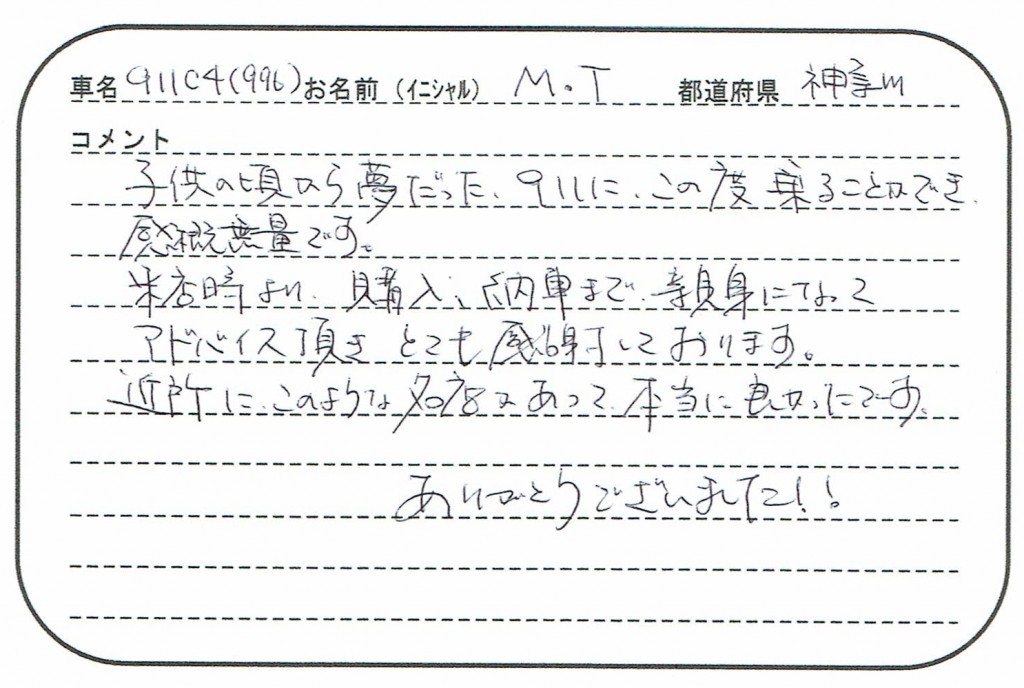 車名 911C4(996) お名前（イニシャル） M.T 都道府県 神奈川
コメント
子供の頃から夢だった、911に、この度乗ることができ、
感概無量です。
来店時より、購入、納車まで、親身になって
アドバイス頂き とても感謝しております。
近所に、このような名店があって、本当に良かったです。
ありがとうございました!!